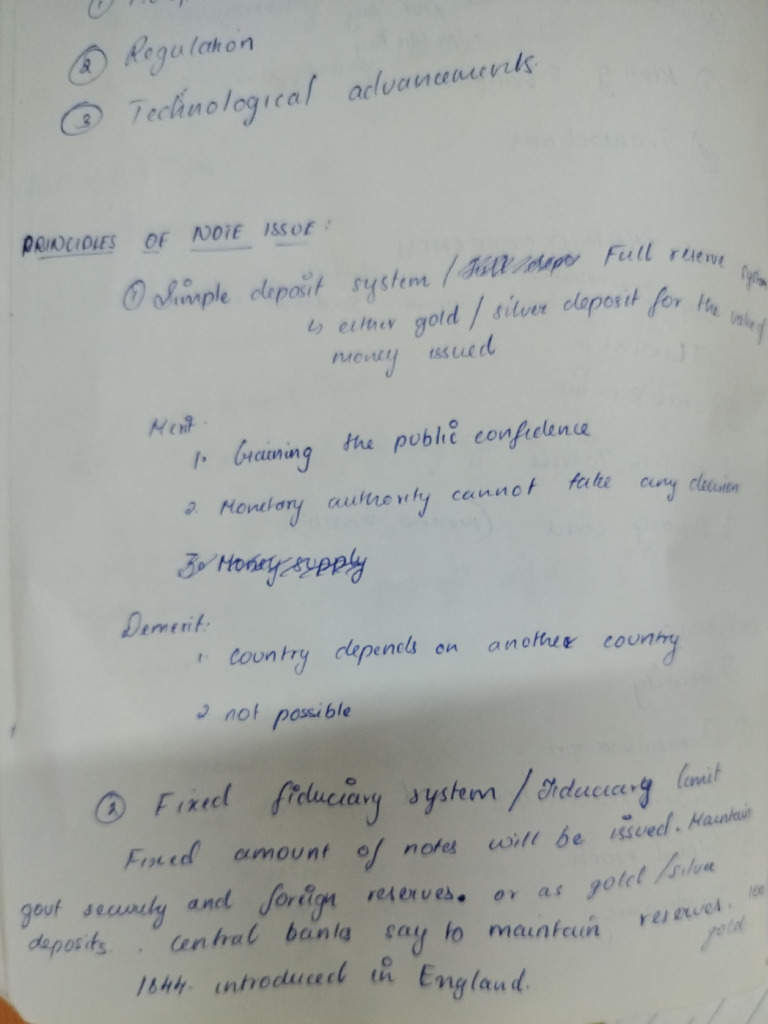 ①
② Regulation
③ Technological advancements.
PRINCIPLES OF NOTE ISSUE:
① Simple deposit system / Full reserve system
↳ either gold / silver deposit for the value of
money issued
Merit:
1. Gaining the public confidence
2. Monetary authority cannot take any decision
3. Money supply
Demerit:
1. country depends on another country
2 not possible
② Fixed fiduciary system / Fiduciary limit
Fixed amount of notes will be issued. Maintain
govt security and foreign reserves. or as gold / silver
deposits. central banks say to maintain reserves. 100
gold
1844. introduced in England.